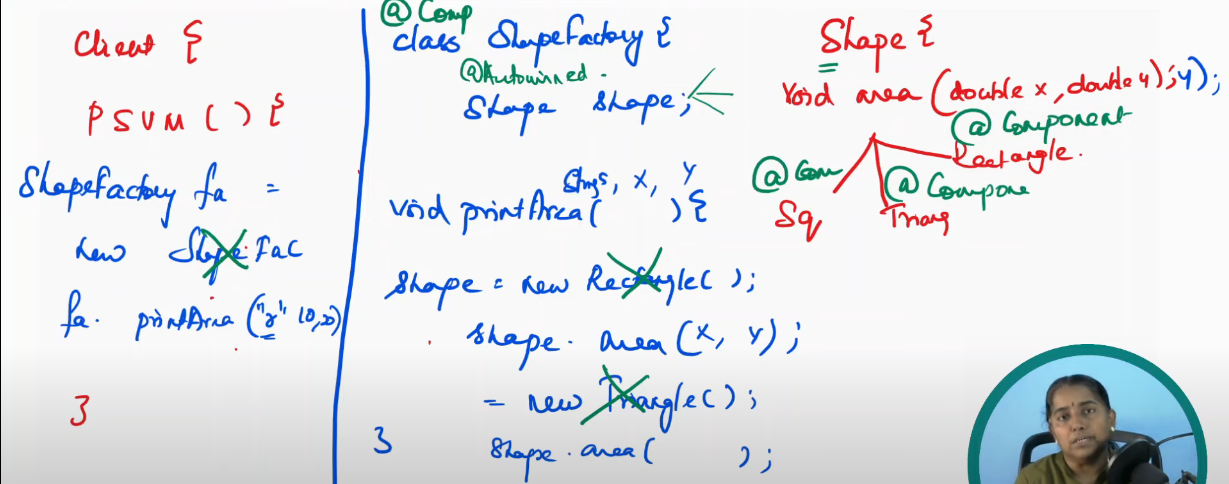 Client {
PSVM ( ) {
ShapeFactory fa =
new Shape Fac
fa. printArea ("r" 10,20)
}
@ Comp
class ShapeFactory {
@Autowired.
Shape shape;
x, y
void printArea( ) {
shape = new Rectangle( );
shape. area (x, y);
= new Triangle( );
shape. area( );
}
Shape {
void area (double x, double y); y);
@ Component
Rectangle.
@ Com
@ Compone
Sq
Triang